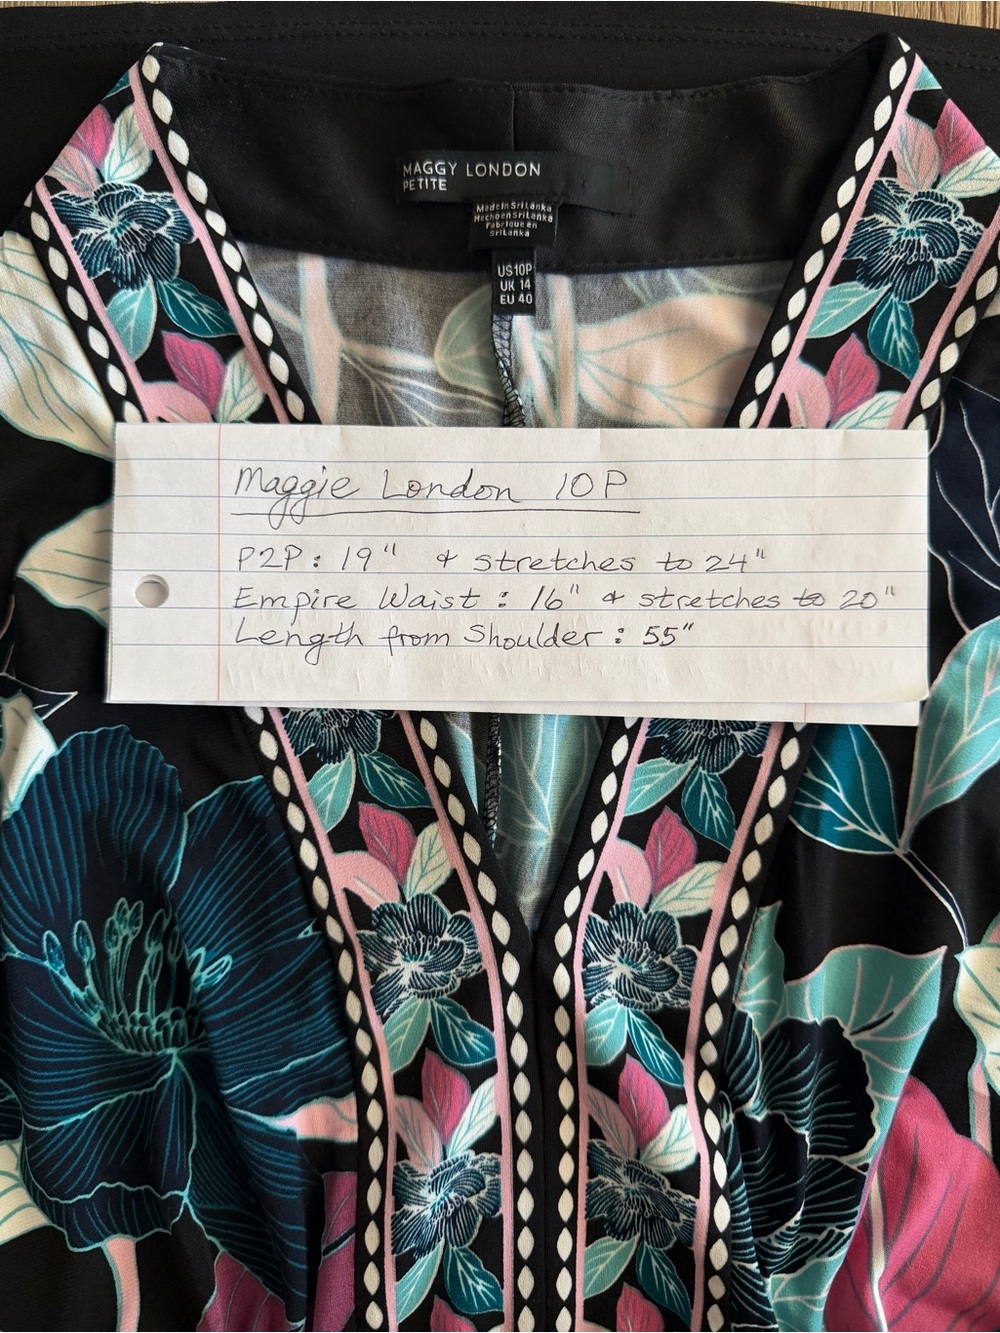 MAGGY LONDON
PETITE
Made in Sri Lanka
Hecho en Sri Lanka
Fabriqué en
Sri Lanka
US 10P
UK 14
EU 40
Maggie London 10P
P2P: 19" & stretches to 24"
Empire Waist: 16" & stretches to 20"
Length from Shoulder: 55"